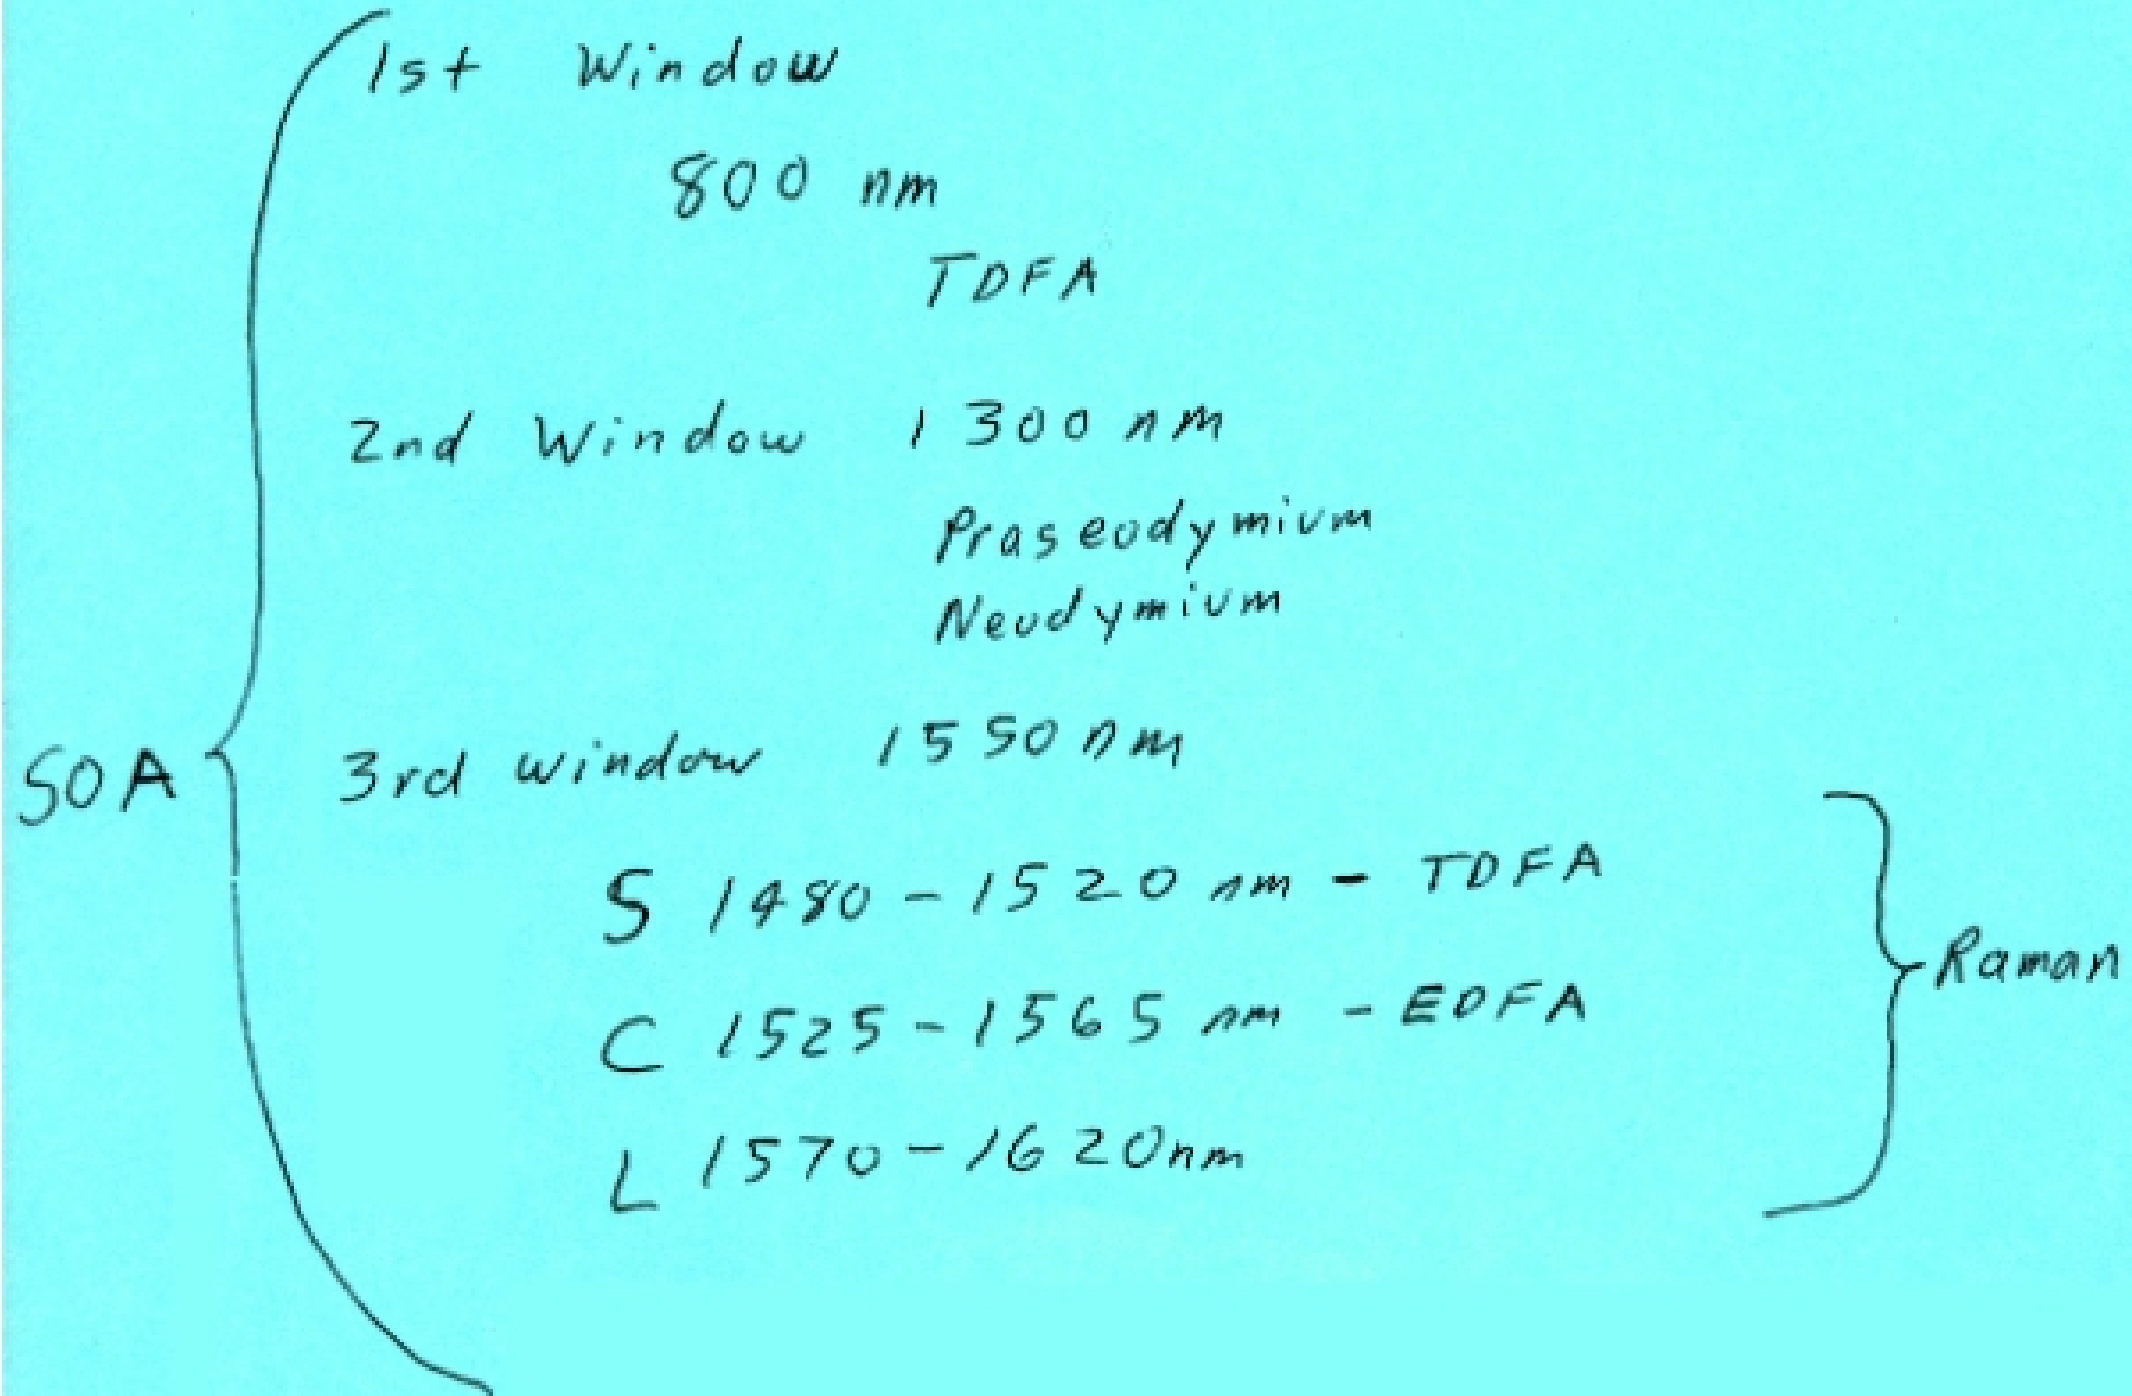 1st Window
800 nm
TDFA
2nd Window 1300 nm
Praseodymium
Neodymium
SOA
3rd window 1550 nm
S 1480 - 1520 nm - TDFA
C 1525 - 1565 nm - EDFA
Raman
L 1570 - 1620nm